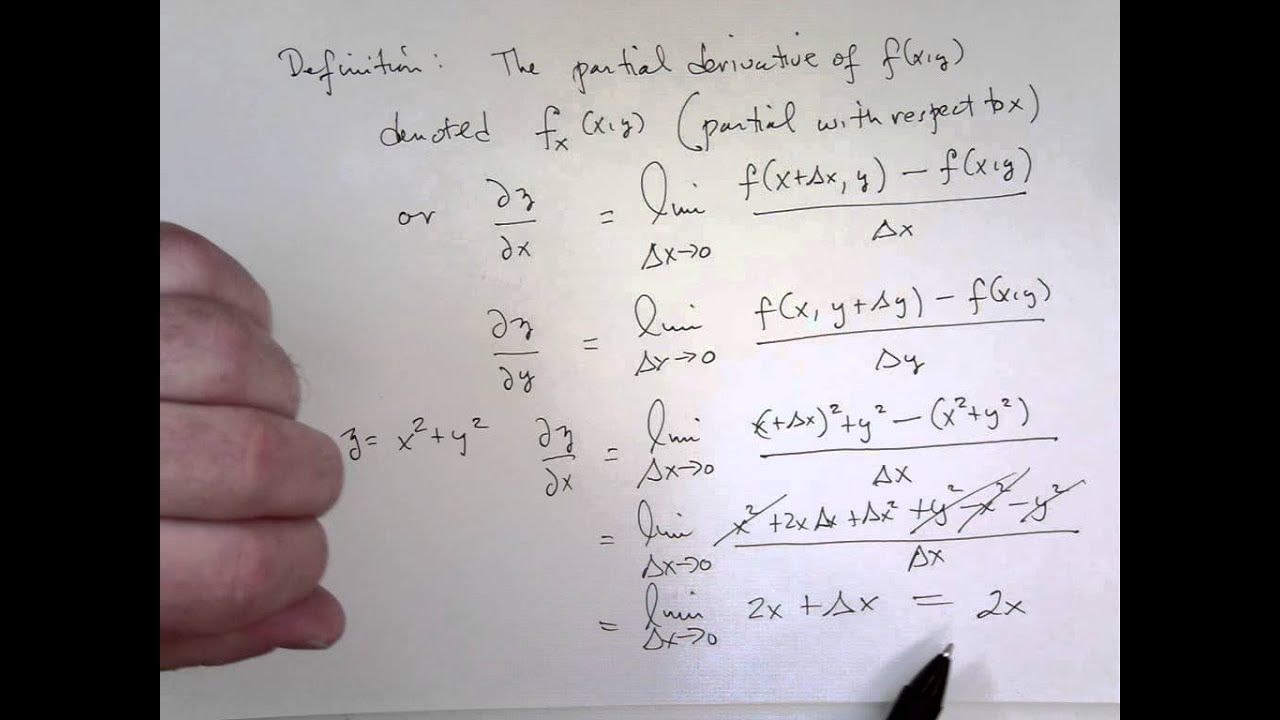 Definition: The partial derivative of f(x,y)
denoted fₓ(x,y) (partial with respect to x)
or ∂z/∂x = lim Δx→0 (f(x+Δx, y) − f(x,y))/Δx
∂z/∂y = lim Δy→0 (f(x, y+Δy) − f(x,y))/Δy
z = x²+y² ∂z/∂x = lim Δx→0 ((x+Δx)²+y² − (x²+y²))/Δx
= lim Δx→0 (x² + 2xΔx + Δx² + y² − x² − y²)/Δx
= lim Δx→0 2x + Δx = 2x